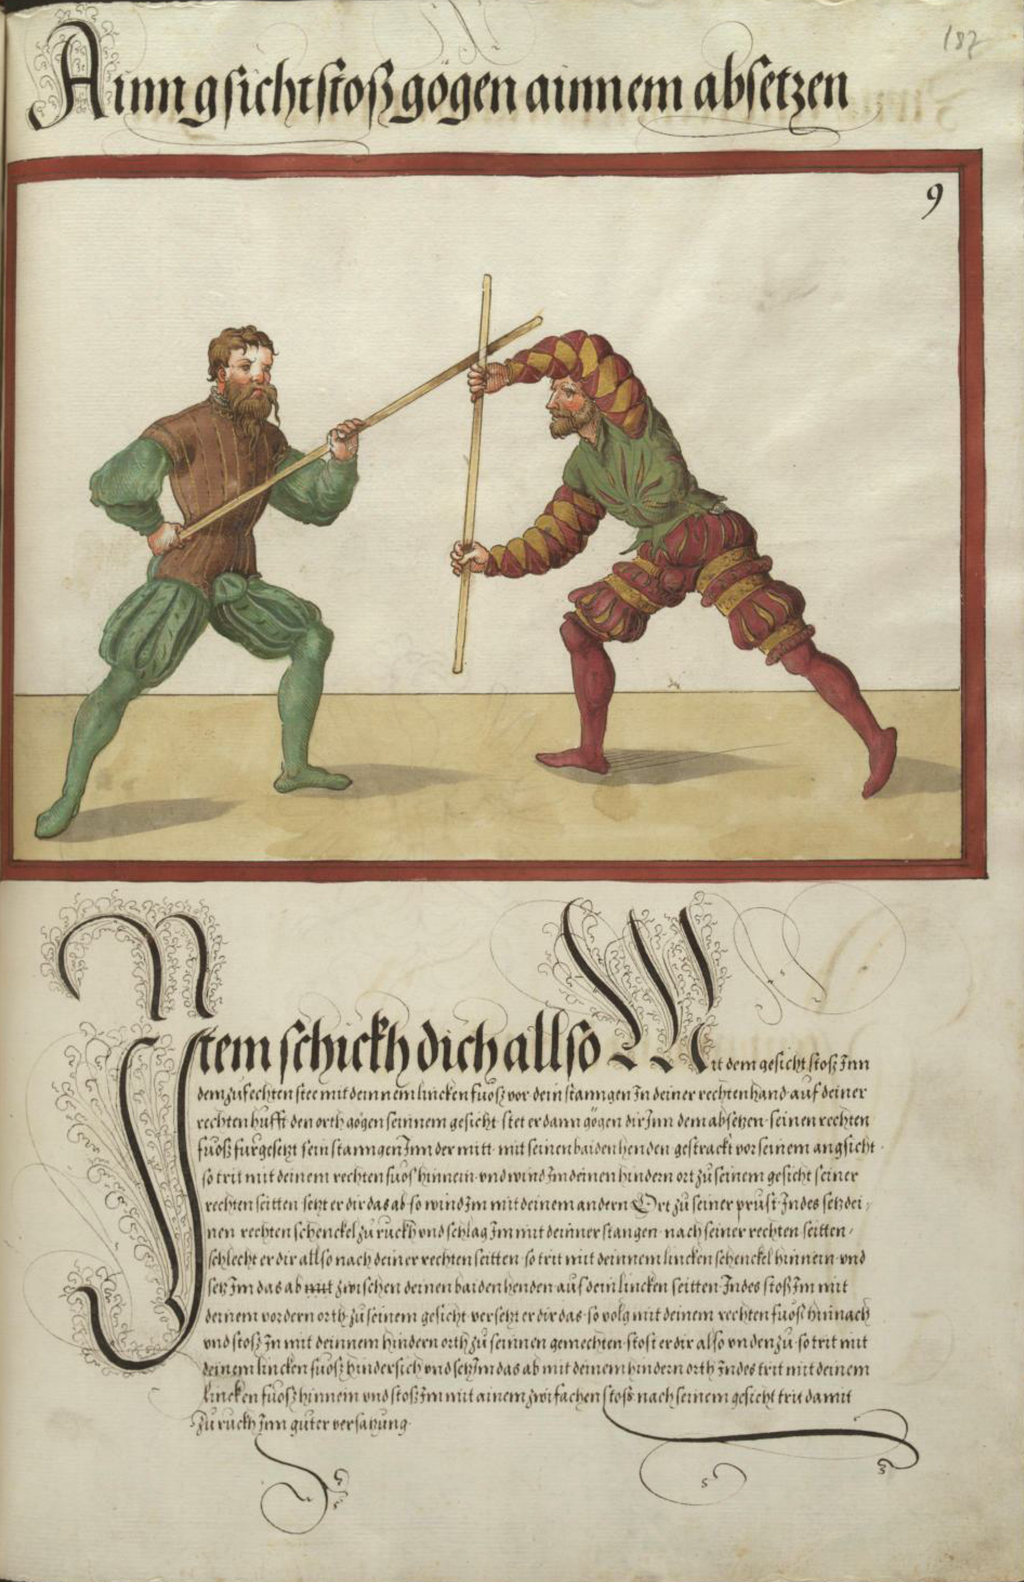 187
Ainn gsichtstosz gögen ainnem absetzen
9
Item schickh dich allso Mit dem gesicht stosz Inn
dem zufechten stee mit deinnem lincken fuosz vor dein stanngen In deiner rechten hand auf deiner
rechten hufft den orth gögen seinnem gesicht stet er dann gögen dir Inn dem absetzen seinen rechten
fuosz fürgesetzt sein stanngen Inn der mitt mit seinen baiden henden gestrackt vor seinem angsicht
so trit mit deinem rechten fuos hinnein und wind Im deinen hindern ort zu seinem gesicht seiner
rechten seitten setzt er dir das ab so wind Im mit deinem andern Ort zu seiner prust Indes setz dei
nen rechten schenckel zu ruckh und schlag Im mit deinner stangen nach seiner rechten seitten
schlecht er dir allso nach deiner rechten seitten so trit mit deinnem lincken schenckel hinnein und
setz Im das ab mit zwischen deinen baiden henden auf dein lincken seitten Indes stosz Im mit
deinem vordern orth zu seinem gesicht versetzt er dir das so volg mit deinem rechten fuosz hinnach
und stosz In mit deinnem hindern orth zu seinnen gemechten stost er dir also unden zu so trit mit
deinem lincken fuosz hindersich und setz Im das ab mit deinem hindern orth Indes trit mit deinem
lincken fuosz hinnein und stosz Im mit ainem zwifachen stosz nach seinem gesicht trit damit
zu ruckh Inn guter versatzung